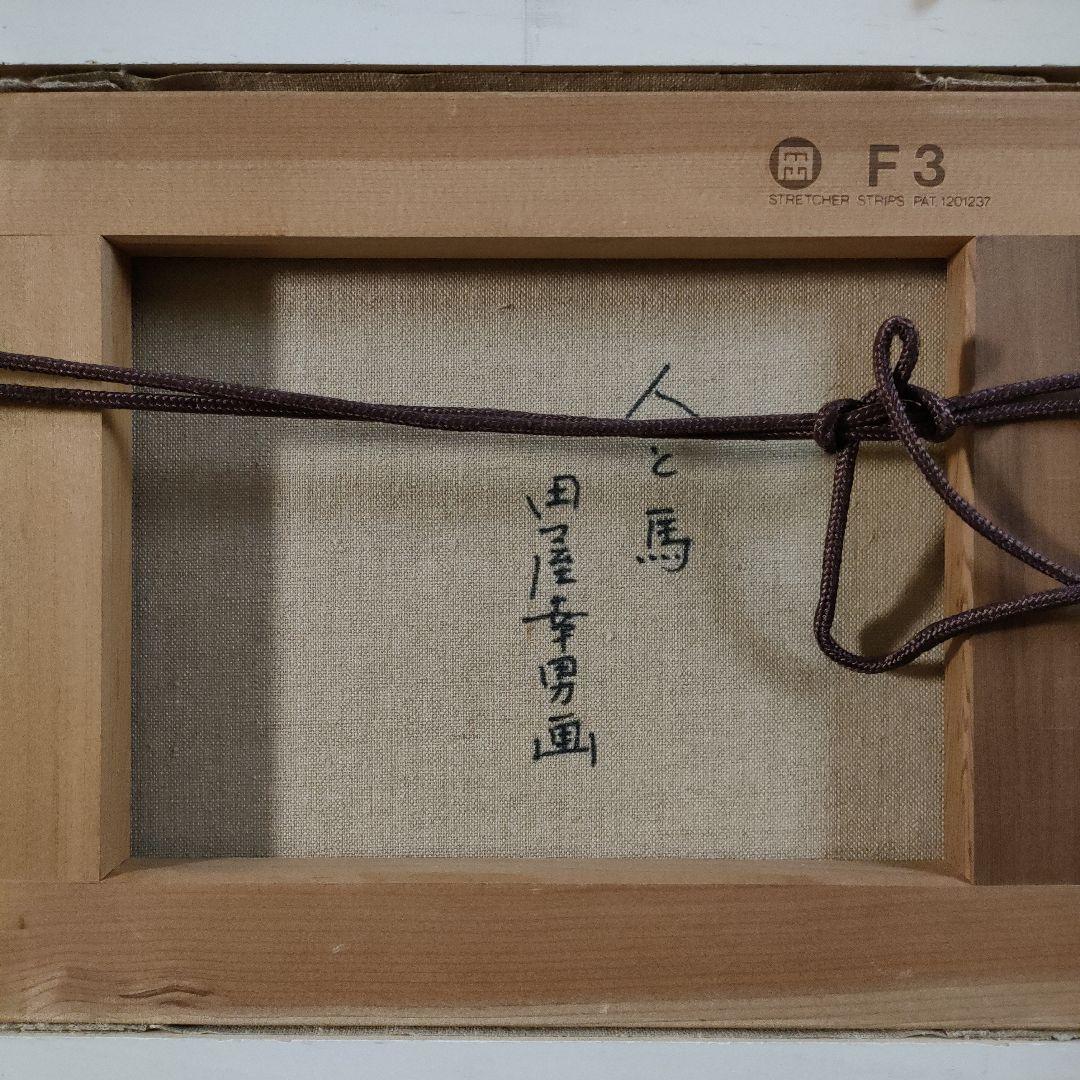 F3
STRETCHER STRIPS PAT. 1201237
人と馬
田屋幸男画